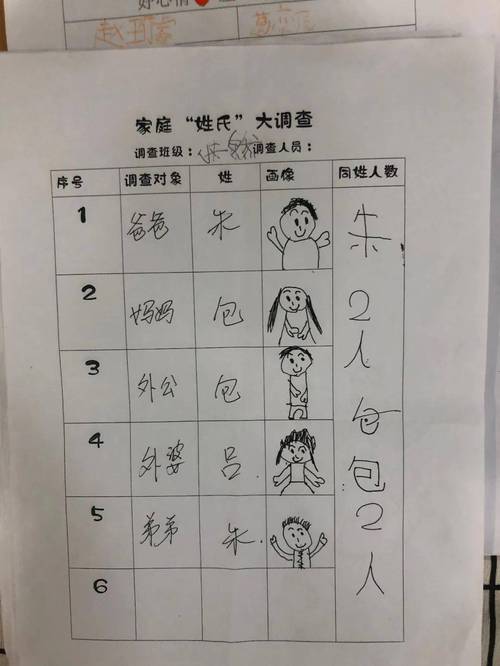 好心情
赵
家庭“姓氏”大调查
调查班级： 调查人员：
序号 调查对象 姓 画像 同姓人数
1 爸爸 朱
2 妈妈 包
3 外公 包
4 外婆 吕
5 弟弟 朱
6
朱
2
人
包
包
2
人